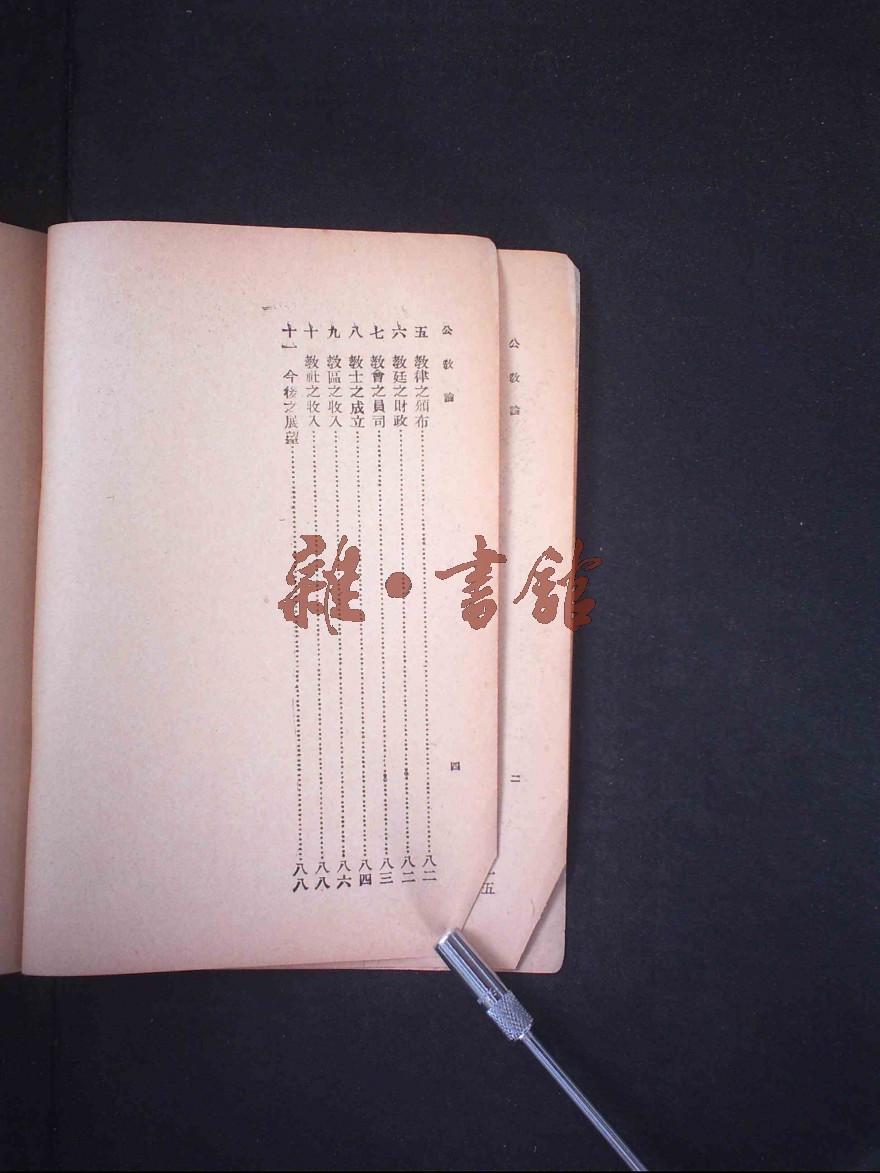 公教論
二
五
公教論
四
五 教律之頒布……八二
六 教廷之財政……八二
七 教會之員司……八三
八 教士之成立……八四
九 教區之收入……八六
十 教社之收入……八八
十一 今後之展望……八八
雜·書館